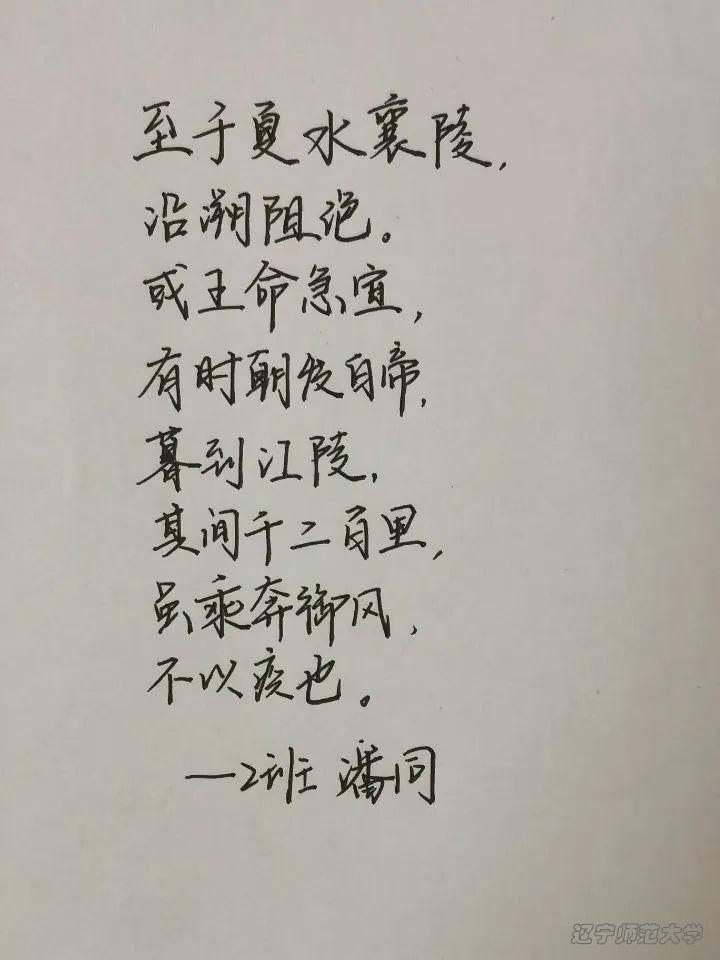 至于夏水襄陵，
沿溯阻绝。
或王命急宣，
有时朝发白帝，
暮到江陵，
其间千二百里，
虽乘奔御风，
不以疾也。
—2班 潘同
辽宁师范大学